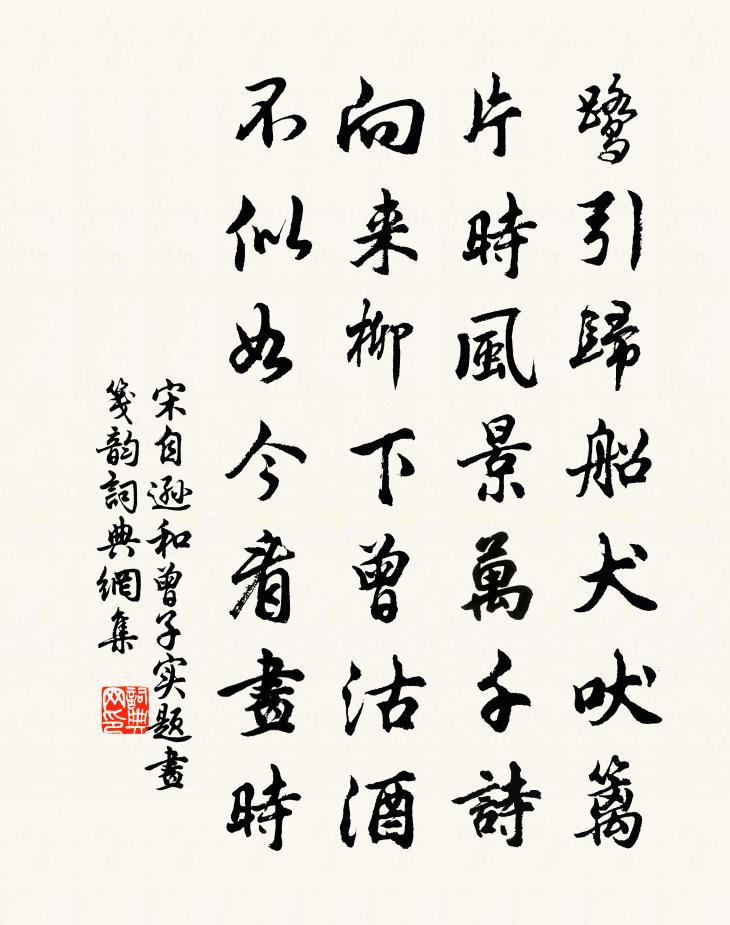 鷺引歸船犬吠籬
片時風景萬千詩
向来柳下曾沽酒
不似如今看畫時
宋自遜和曾子实题畫
笺韵詞典網集
詞典网印